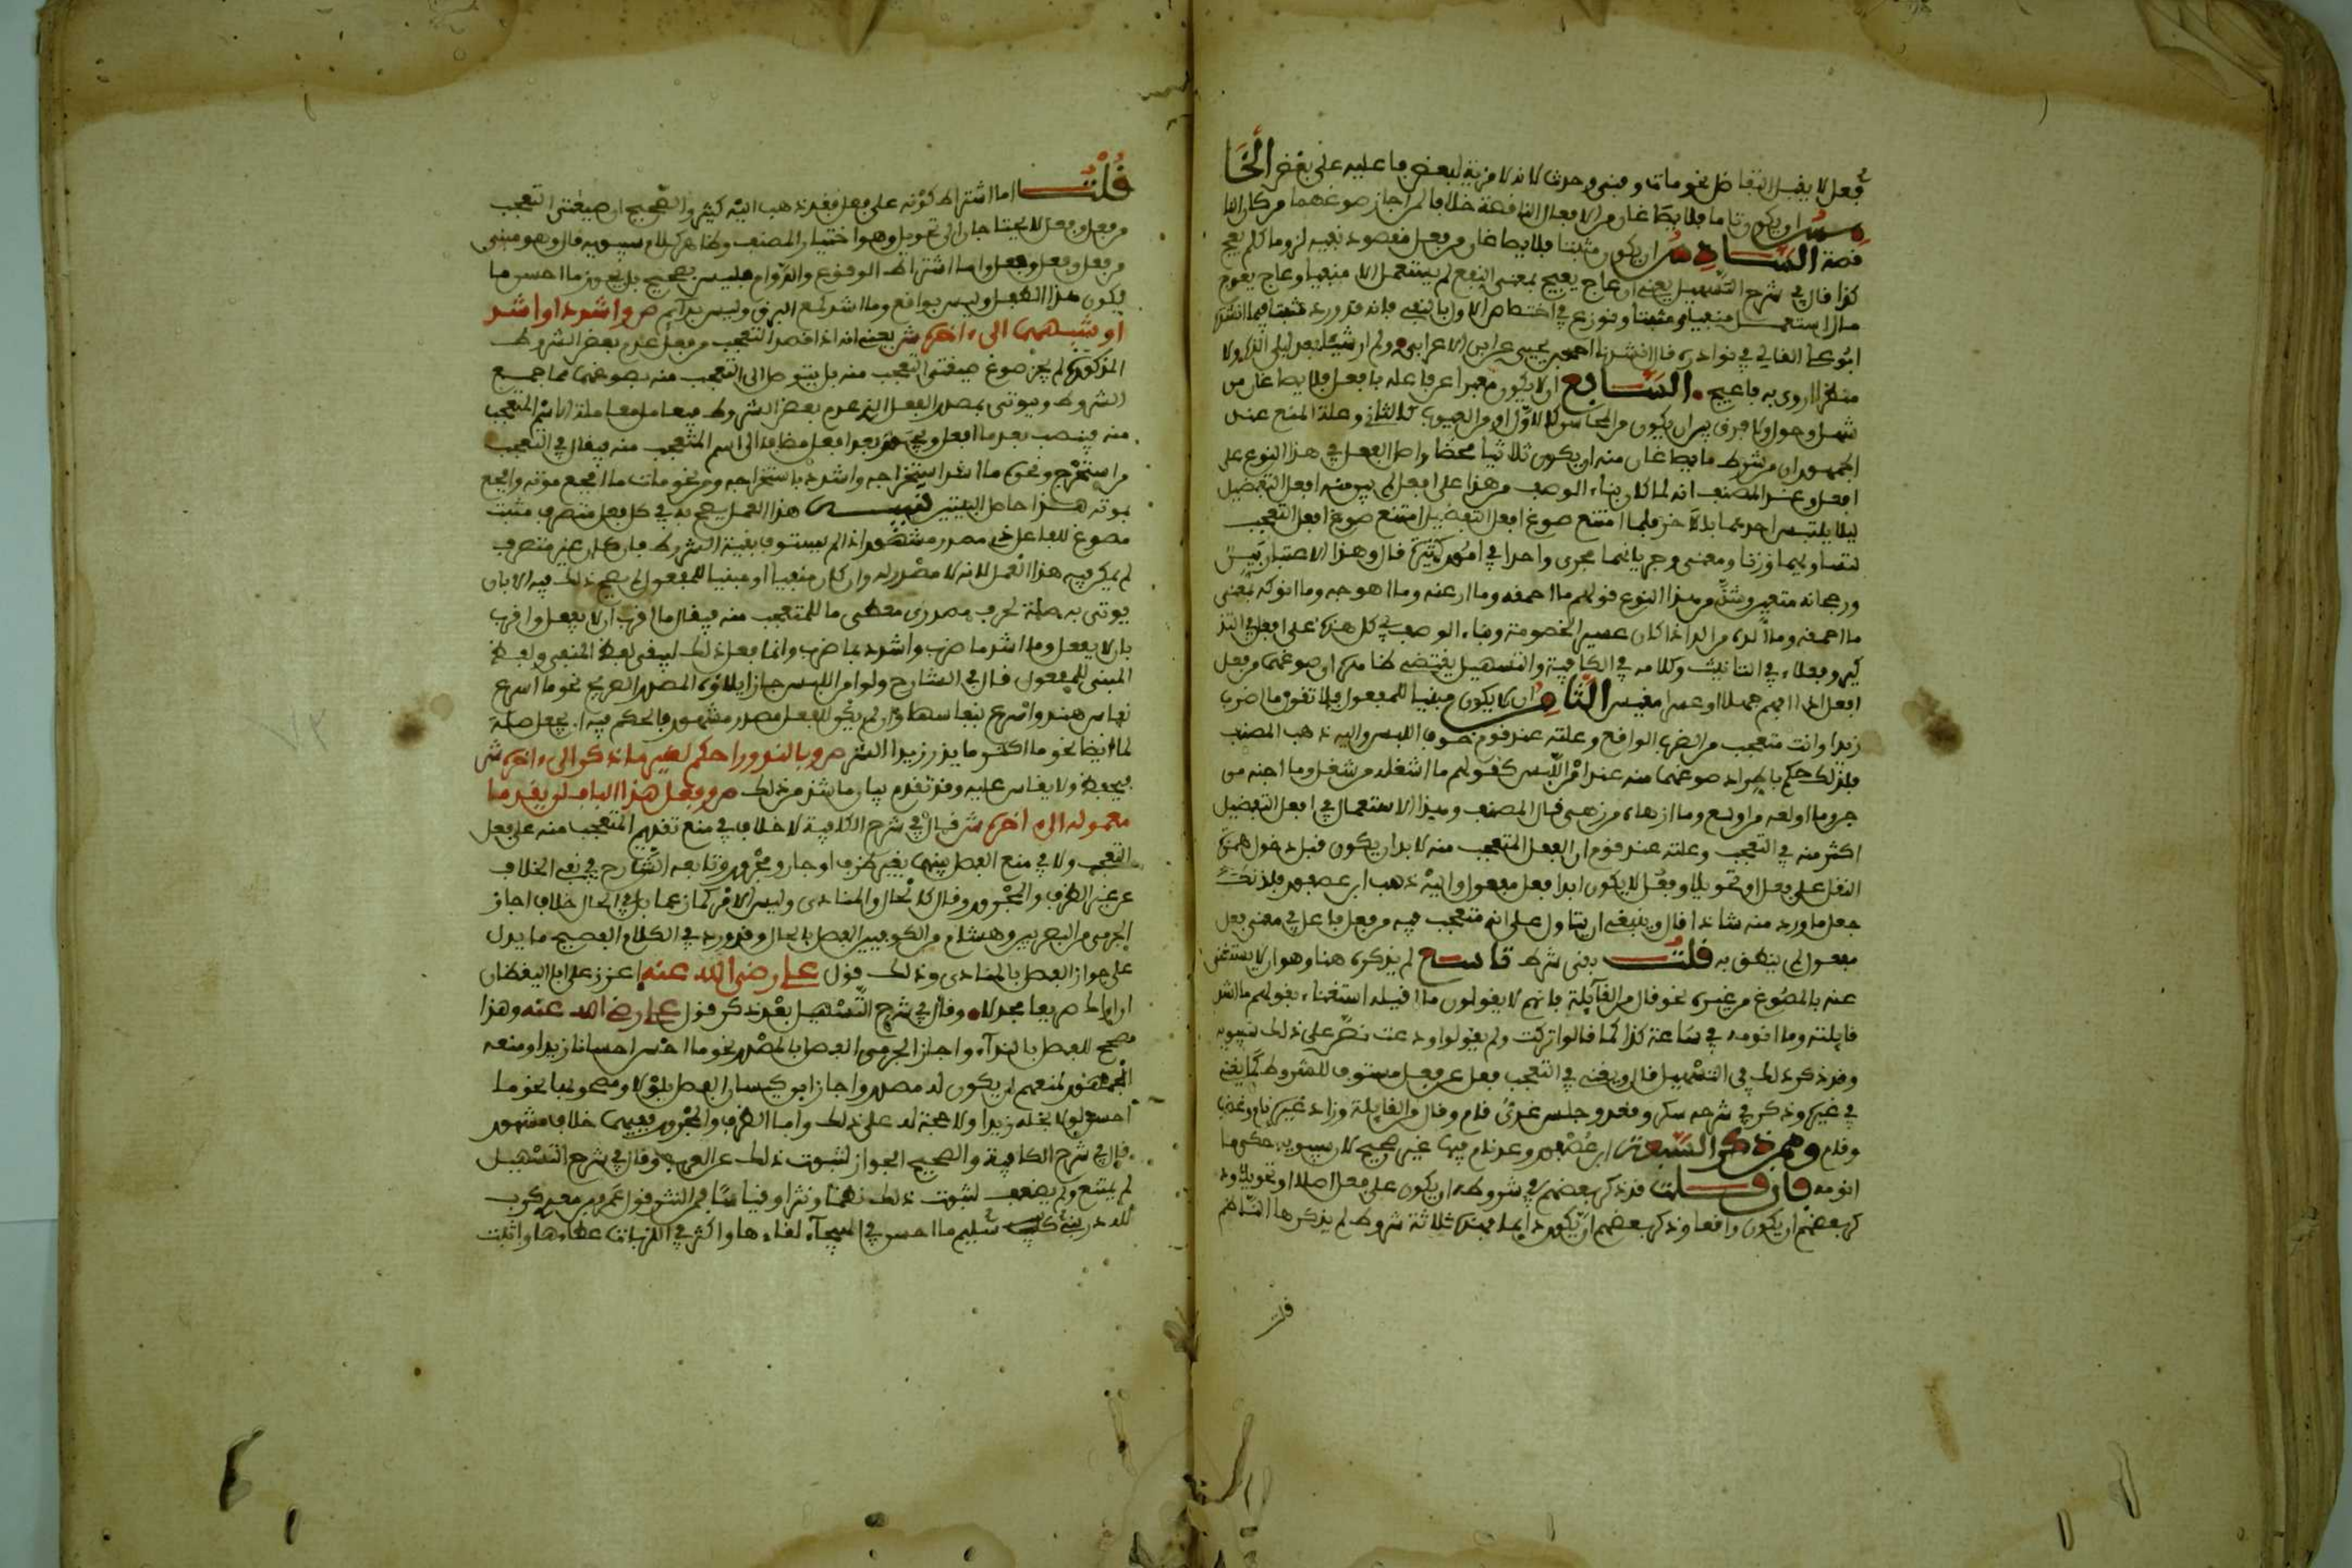 فعل لا يقبل التفاضل نحو مات وفنى وحدث لانه لا مزية لبعض فاعليه على بعض الخا
مس ان يكون تاما فلا يصاغان من الافعال الناقصة خلافا لمن اجاز صوغهما من كان النا
قصة السادس ان يكون مثبتا فلا يصاغان من فعل مقصود نفيه لزوما كلم يعج
كذا قال في شرح التسهيل يعني ان عاج يعيج بمعنى انتفع لم يستعمل الا منفيا وعاج يعوج
مال استعمل منفيا ومثبتا ونوزع في اختصاص الاول بالنفي فانه قد ورد مثبتا فيما انشده
ابو علي القالي في نوادره قال انشدنا احمد بن يحيى عن ابن الاعرابي ولم ار شيئا بعد ليلى الذه ولا
منظرا اروى به فاعيج السابع ان لا يكون معبرا عن فاعله بافعل فلا يصاغان من
شهل وحول ولا فرق بين ان يكون من المحاسن كالاول او من العيوب كالثاني وعلة المنع عند
الجمهور ان من شرط ما يصاغان منه ان يكون ثلاثيا محضا واصل الفعل في هذا النوع على
افعل وعند المصنف انه لما كان بناء الوصف من هذا على افعل لم يبن منه افعل التفضيل
ليلا يلتبس احدهما بالاخر فلما امتنع صوغ افعل التفضيل امتنع صوغ افعل التعجب
لتساويهما وزنا ومعنى وجريانهما مجرى واحدا في امور كثيرة قال وهذا الاعتبار بين
ورجحانه متعين وشذ من هذا النوع قولهم ما احمقه وما ارعنه وما اهوجه وما انوكه بمعنى
ما احمقه وما الده من الد اذا كان عسير الخصومة وبناء الوصف في كل هذه على افعل في التذ
كير وفعلاء في التانيث وكلامه في الكافية والتسهيل يقتضي ظاهره ان صوغهما من فعل
افعل اذا افهم جهلا او عسرا مقيس الثامن ان لا يكون مبنيا للمفعول فلا تقول ما اضرب
زيدا وانت متعجب من الضرب الواقع وعلته عند قوم خوف اللبس واليه ذهب المصنف
فلذلك حكم باطراد صوغهما منه عند امن اللبس كقولهم ما اشغله من شغل وما اجنه من
جن وما اولعه من اولع وما ازهاه من زهى قال المصنف وهذا الاستعمال في افعل التفضيل
اكثر منه في التعجب وعلته عند قوم ان الفعل المتعجب منه لا بد ان يكون قبل دخول همزة
النقل على فعل او تحويلا وفعل لا يكون ابدا فعل مفعول واليه ذهب ابن عصفور فلذلك
جعل ما ورد منه شاذا قال وينبغي ان يتاول على انه متعجب فيه من فعل فاعل في معنى فعل
مفعول لم ينطق به قلت بقى شرط تاسع لم يذكره هنا وهو ان لا يستغنى
عنه بالمصوغ من غيره نحو قال من القايلة فانهم لا يقولون ما اقيله استغناء بقولهم ما اشد
قايلته وما انومه في ساعة كذا كما قالوا تركت ولم يقولوا ودعت نص على ذلك سيبويه
وقد ذكر ذلك في التسهيل قال ويغني في التعجب فعل عن فعل مستوف للشروط كما يغني
في غيره وذكر في شرحه سكر وقعد وجلس ضدي قام وقال من القايلة وزاد غيره نام وغضب
وقام وممن ذكر السبعة ابن عصفور وعد نام فيها غير صحيح لان سيبويه حكى ما
انومه فان قلت قد ذكر بعضهم في شروطه ان يكون على فعل اصلا او تحويلا وذ
كر بعضهم ان يكون واقعا وذكر بعضهم ان يكون دايما فهذه ثلاثة شروط لم يذكرها الناظم
قلت
قلت اما اشتراط كونه على فعل فقد ذهب اليه كثير والصحيح ان صيغتي التعجب
من فعل وفعل لا يحتاجان الى تحويل وهو اختيار المصنف وظاهر كلام سيبويه قال وهو مبنى
من فعل وفعل وفعل واما اشتراط الوقوع والدوام فليس بصحيح بل يجوز ما احسن ما
يكون هذا الطفل وليس بواقع وما اشد لمع البرق وليس بدائم ص واشدد او اشد
او شبههما الى ءاخره ش يعني انه اذا قصد التعجب من فعل عدم بعض الشروط
المذكورة لم يجز صوغ صيغتي التعجب منه بل يتوصل الى التعجب منه بصوغهما مما جمع
الشروط ويوتى بمصدر الفعل الذي عدم بعض الشروط فيعامل معاملة الاسم المتعجب
منه فينصب بعد ما افعل ويجر بعد افعل مضافا الى اسم المتعجب منه فيقال في التعجب
من استخرج ونحوه ما اشد استخراجه واشدد باستخراجه ومن نحو مات ما افجع موته وافجع
بموته هذا حاصل البيتين تنبيه هذا العمل يصح به في كل فعل متصرف مثبت
مصوغ للفاعل ذي مصدر مشهور اذا لم يستوف بقية الشروط فان كان غير متصرف
لم يمكن فيه هذا العمل لانه لا مصدر له وان كان منفيا او مبنيا للمفعول لم يصح ذلك فيه الا بان
يوتى به صلة لحرف مصدري معطى ما للمتعجب منه فيقال ما اقرب ان لا يفعل واقرب
بان لا يفعل وما اشد ما ضرب واشدد بما ضرب وانما فعل ذلك ليبقى لفظ المنفي ولفظ
المبني للمفعول قال في الشارح ولو امن اللبس جاز ايلاؤه المصدر الصريح نحو ما اسرع
نفاس هند واسرع بنفاسها وان لم يكن للفعل مصدر مشهور فالحكم فيه ان يجعل صلة
لما ايضا نحو ما اكثر ما يذر زيدا الشر ص وبالندور احكم لغير ما ذكر الى ءاخره ش
فيحفظ ولا يقاس عليه وقد تقدم بيان ما شذ من ذلك ص وفعل هذا الباب لن يقدما
معموله الى ءاخره ش قال في شرح الكافية لا خلاف في منع تقديم المتعجب منه على فعل
التعجب ولا في منع الفصل بينهما بغير ظرف او جار ومجرور وتابعه الشارح في نفي الخلاف
عن غير الظرف والمجرور وقال كالحال والمنادى وليس الامر كما زعما بل في الحال خلاف اجاز
الجرمي من البصريين وهشام من الكوفيين الفصل بالحال وقد ورد في الكلام الفصيح ما يدل
على جواز الفصل بالمنادى وذلك قول علي رضي الله عنه اعزز علي ابا اليقظان
ان اراك صريعا مجدلا وقال في شرح التسهيل بعد ذكر قول علي رضي الله عنه وهذا
مصحح للفصل بالنداء واجاز الجرمي الفصل بالمصدر نحو ما احسن احسانا زيدا ومنعه
الجمهور لمنعهم ان يكون له مصدر واجاز ابن كيسان الفصل بلولا ومصحوبها نحو ما
احسن لولا بخله زيدا ولا حجة له على ذلك واما الظرف والمجرور ففيهما خلاف مشهور
قال في شرح الكافية والصحيح الجواز لثبوت ذلك عن العرب وقال في شرح التسهيل
لم يمتنع ولم يضعف لثبوت ذلك نظما ونثرا وقياسا فمن النثر قول عمرو بن معدي كرب
لله در بني سليم ما احسن في الهيجاء لقاءها واكثر في اللزبات عطاءها واثبت